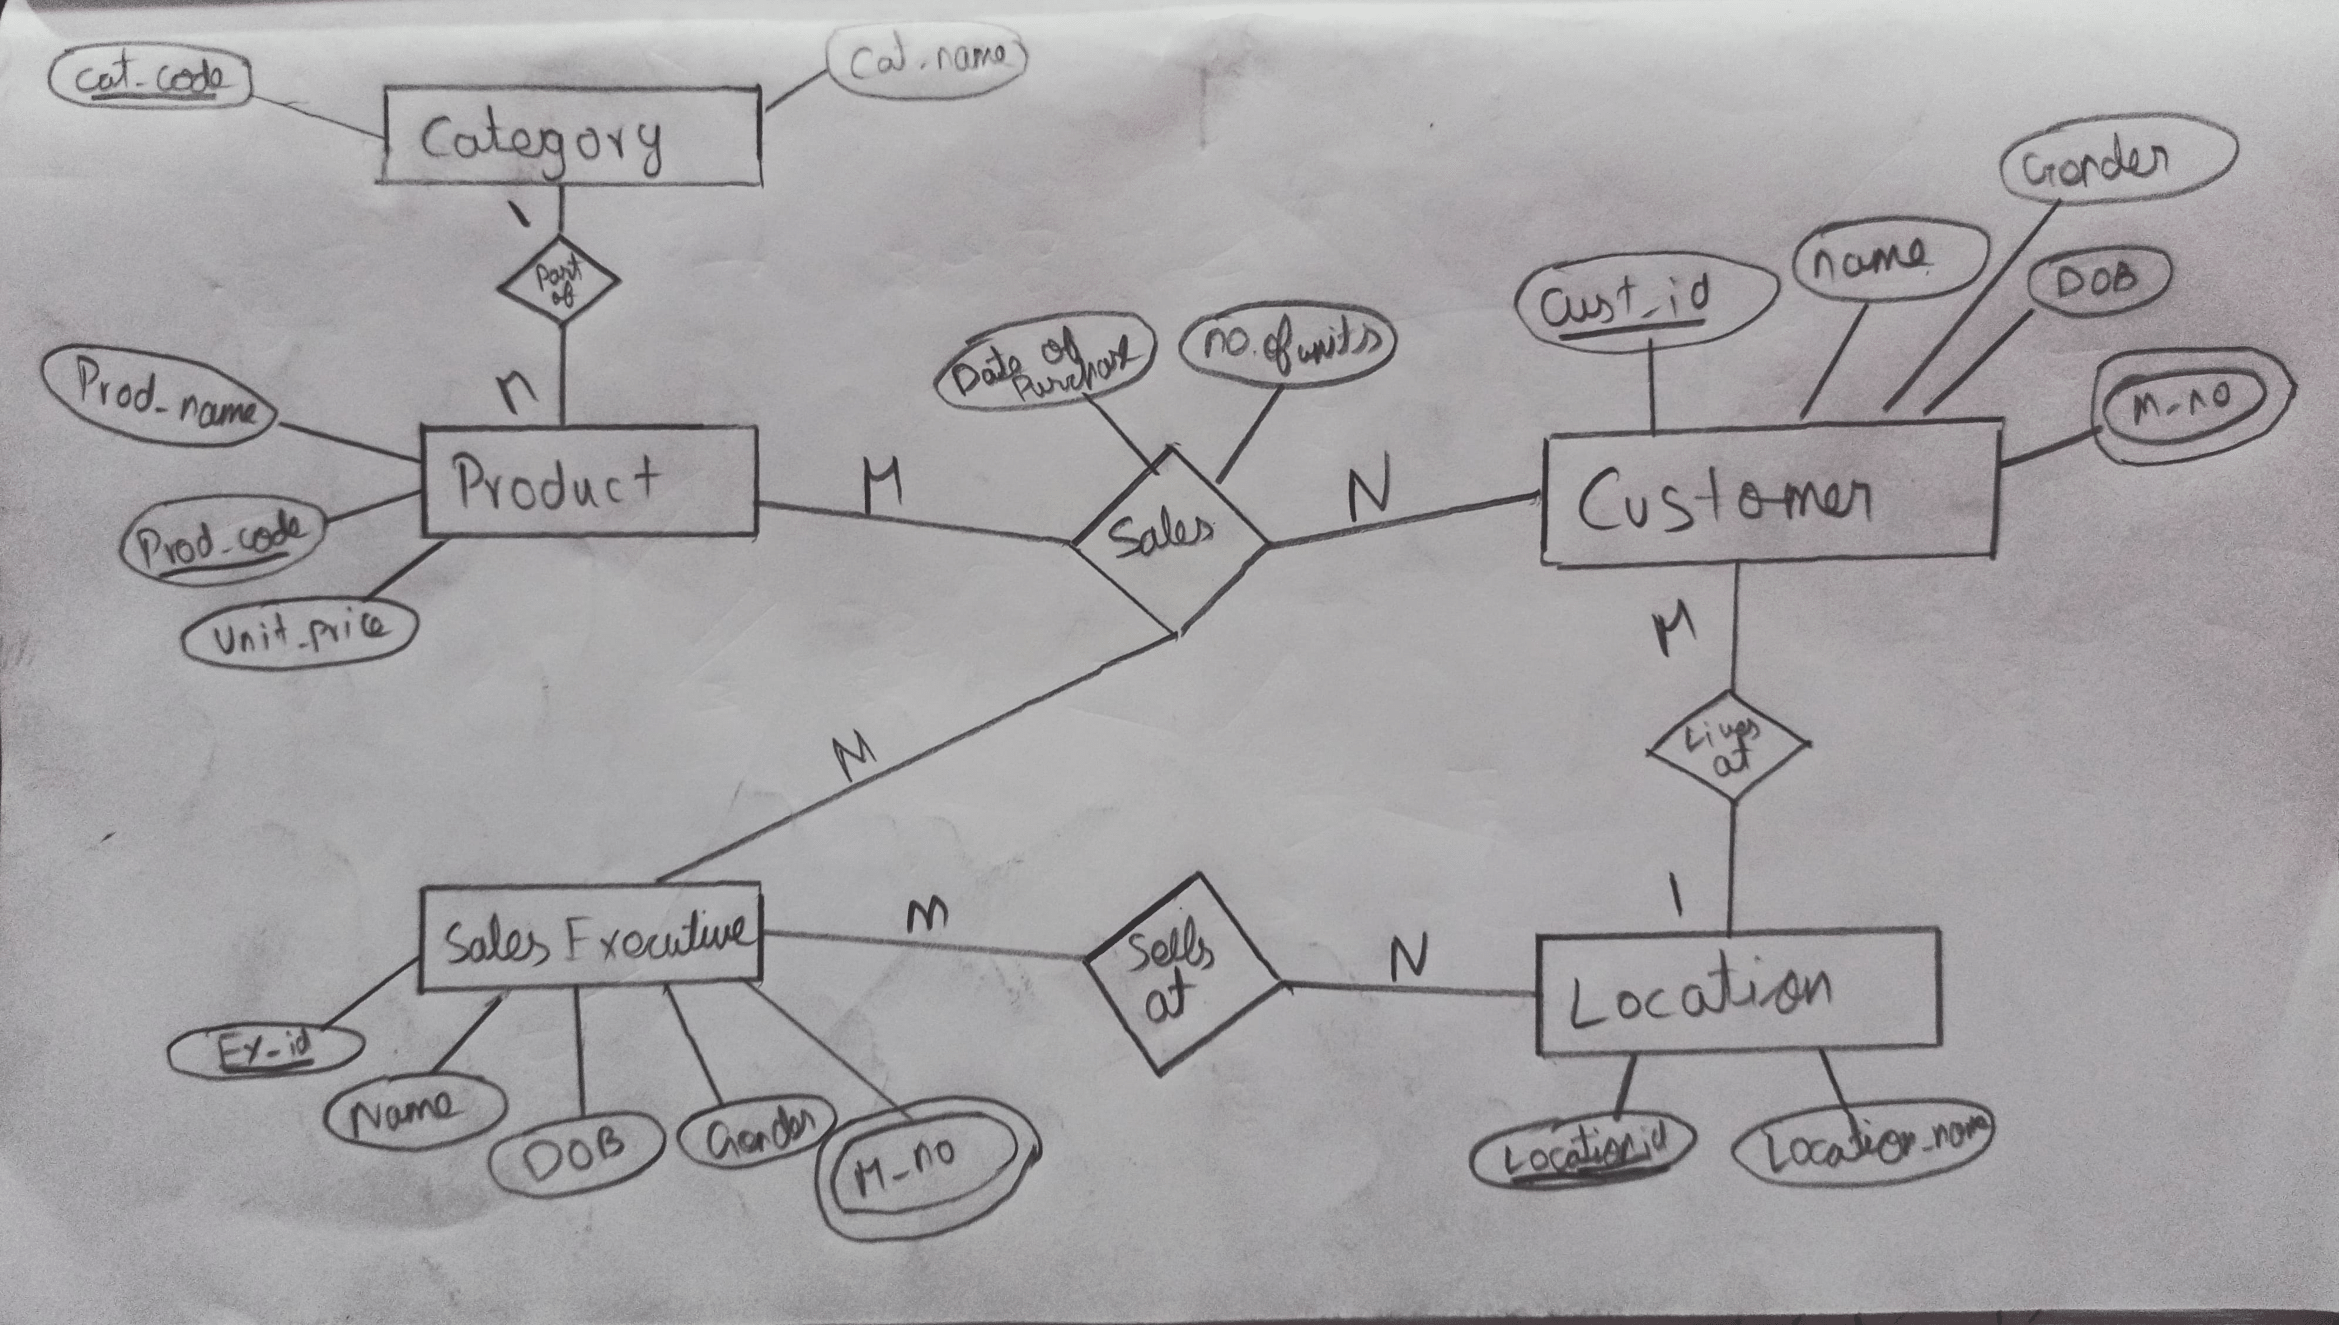 cat-code
Cat-name
Category
1
Part
of
n
Prod-name
Product
Prod-code
Unit-price
M
Date of
Purchase
no. of units
Sales
N
Cust_id
name
Gender
DOB
M-no
Customer
M
Lives
at
1
M
Sales Executive
M
Sells
at
N
Location
Ex-id
Name
DOB
Gender
M-no
Location_id
Location_name